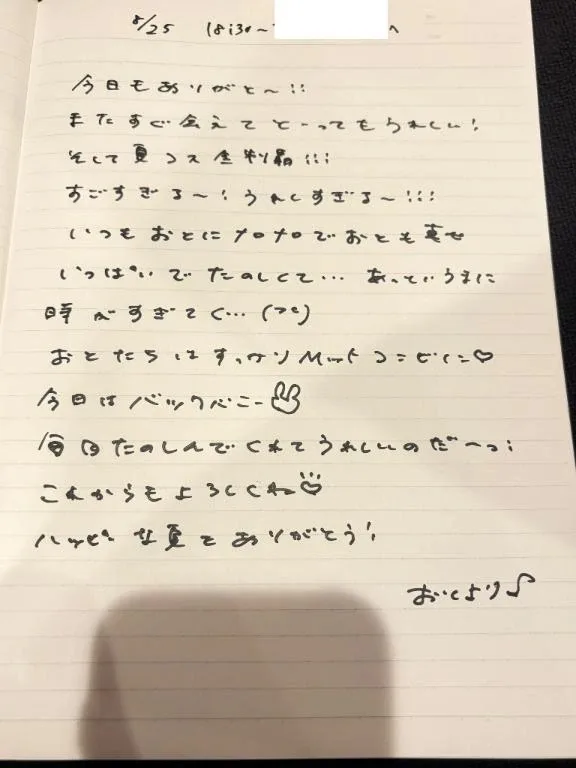 8/25 18:30〜 へ
今日もありがと〜!!
またすぐ会えてとーってもうれしい!
そして夏コス全制覇!!!
すごすぎる〜!うれしすぎる〜!!!
いつもおとにメロメロでおとも幸せ
いっぱいでたのしくて… あっというまに
時がすぎてく…
おとたちはすっかり コンビ♡
今日はバックバニー
毎日たのしんでくれてうれしいのだーっ!
これからもよろしくね♡
ハッピーな夏をありがとう!
おとより♪